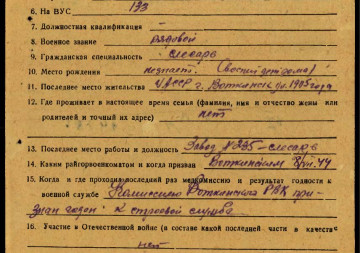 6. На ВУС 133
7. Должностная квалификация —
8. Военное звание рядовой
9. Гражданская специальность слесарь
10. Место рождения не знает.
11. Последнее место жительства УАССР г. Воткинск до 1905 года
12. Где проживает в настоящее время семья (фамилия, имя и отчество жены или
родителей и точный их адрес) нет
13. Последнее место работы и должность Завод № 235 - слесарь
14. Каким райгорвоенкоматом и когда призван Воткинским
15. Когда и где проходил последний раз медкомиссию и результат годности к
военной службе Комиссию Воткинского РВК при-
знан годен к строевой службе
16. Участие в Отечественной войне (в составе какой последней части и в качестве
нет